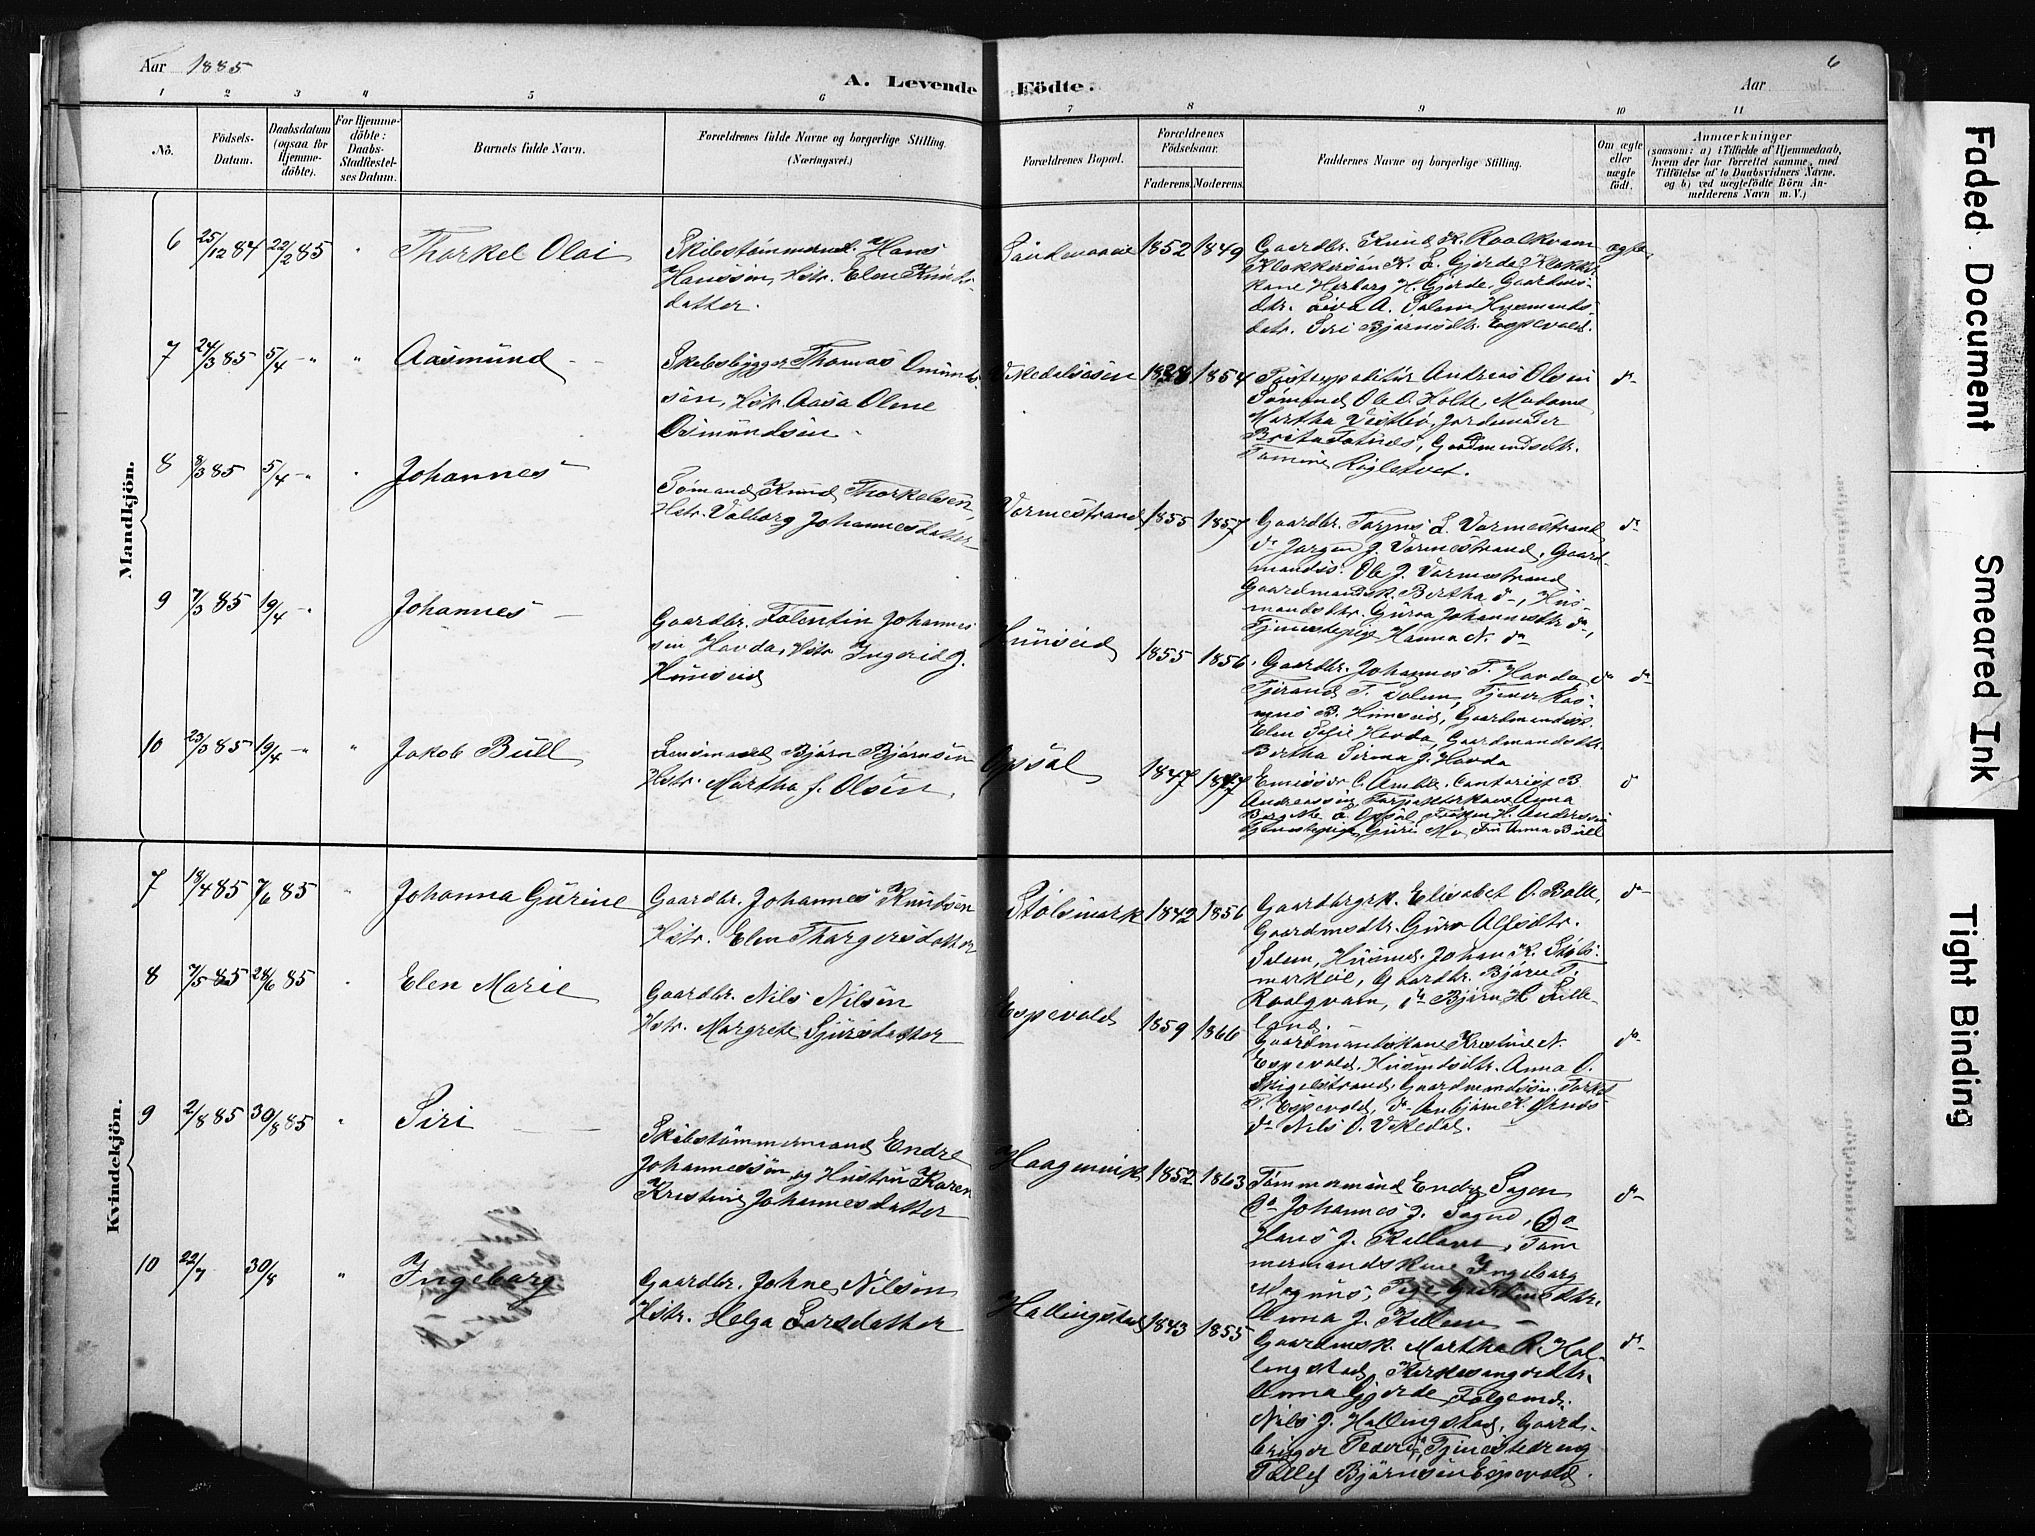 Aar 1885
A. Levende Födte.
Aar
6
1 2 3 4 5 6 7 8 9 10 11
No.
Födsels-
Datum.
Daabsdatum
(ogsaa for
Hjemme-
döbte).
For Hjemme-
döbte:
Daabs-
Stadfæstel-
ses Datum.
Barnets fulde Navn.
Forældrenes fulde Navne og borgerlige Stilling.
(Næringsvei.)
Forældrenes Bopæl.
Forældrenes
Födselsaar.
Faderens. Moderens.
Faddernes Navne og borgerlige Stilling.
Om ægte
eller
uægte
födt.
Anmærkninger
(saasom: a) i Tilfælde af Hjemmedaab,
hvem der har forrettet samme, med
Tilföielse af to Daabsvidners Navne,
og b) ved uægtefödte Börn An-
melderens Navn m. V.)
Mandkjön.
6 25/12 84 22/2 85 " Thorkel Olai
Skibstömmermd. Hans
Hanssen, Hstr. Elen Knuts-
datter.
1852 1849
Gaardbr. Knud K. Raalkvam
Klokkersön K. L. Gjerde, Klokker-
kone Herborg H. Gjerde, Gaardmds-
dtr. A. Solem Husmands-
datr. Siri Bjørnsdtr. Espevold.
ægte
7 24/3 85 5/4 - " " Aasmund -
Skibsbygger Thomas Omund-
sön, Hstr. Aasa Oline
Osmundsen -
Vikedalsøen 1854
Postexpeditör Andreas Olsen
Sömand Ole O. Holte, Madame
Martha Vestbö, Jordemoder
Brita Gaardmandsdtr.
do
8 8/3 85 5/4 - " " Johannes -
Sömand Knud Thorkelsen,
Hstr. Valborg Johannesdatter
Vormestrand 1855 1857
Gaardbr. L. Vormestrand
do Jørgen J. Vormestrand, Gaard-
mandss. Ole J. Vormestrand
Gaardmandsk. Bertha do, Hus-
mandsdtr. Gurva Johannesdtr do,
Tjenestepige Hanna N. do
do
9 7/3 85 19/4 - " Johannes -
Gaardbr. Folentin Johannes
sen Havda, Hstr. Ingerid J.
Hunseid
Hunseid 1855 1856
Gaardbr. Johannes T. Havda, do
Tjerand T. Solem, Tjener Ras-
mus B. Hunseid, Gaardmandsk.
Elen Sofie Havda, Gaardmandsdtr.
Bertha Sirma J. Havda
do
10 23/3 85 19/4 - " " Jakob Bull
Lensmand Björn Björnsen
Hstr. Martha f. Olsen.
Opsal 1847
Emissær C. Amble,
Anna
Opsal, Fröken H. Andersen
Tjenestepige Guri M. Fru Anna Bull
do
Kvindekjön.
7 18/4 85 7/6 85 " Johanna Gurine
Gaardbr. Johannes Knudsen
Hstr. Elen Thorgersdatter
Stölsmark 1842 1856
Gaardbrgrk. Elisabet O. Bolle,
Gaardmsdtr. Guro Alfsdtr.
Solem, Husmd. Johan K. Stöls-
marken, Gaardbr. Björn T.
Raalgvam, do Björn H. Lille-
land.
do
8 7/5 85 28/6 85 " Elen Marie
Gaardbr. Nils Nilsen
Hstr. Margrete Sjursdatter
Espevold 1859 1866
Gaardmandskone Kristine N.
Espevold, Husmdsdtr. Anna O.
Skigelstrand, Gaardmandssön Torkel
T. Espevold, do Anbjørn K. Ørnes
do Nils O. Vikedal.
do
9 2/8 85 30/8 85 " Siri -
Skibstömmermand Endre
Johannessön og Hustru Karen
Kristine Johannesdatter
Haagenvik 1852 1863
Tömmermand Endre Sagen
do Johannes J. Sagen, do
Hans J. Kallem, Töm
mermandskone Ingeborg
Magnus, Pige
Anna J. Kallem -
do
10 22/7 30/8 " Ingeborg
Gaardbr. Johne Nilsen
Hstr. Helga Larsdatter
Hallingstad 1843 1855
Gaardmsk. Martha R. Hal-
lingstad, Kirkesangerdtr.
Anna Gjerde, Folgemd.
Nils J. Hallingstad, Gaard-
bruger Peder, Tjenestedreng
Tollef Björnsen Espevold.
do
Faded Document
Smeared Ink
Tight Binding